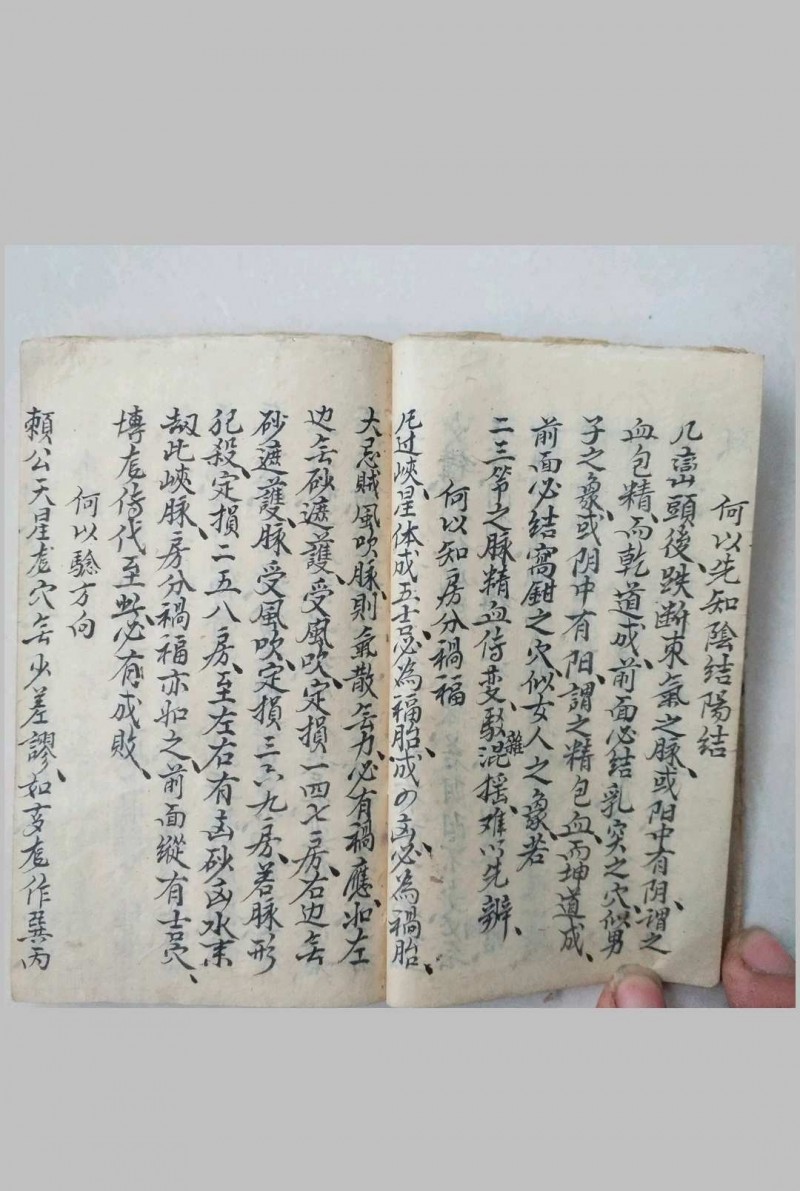 何以先知陰結陽結
凡巒頭後跌断束氣之脉或阳中有阴謂之
血包精而乾道成前面必结乳突之穴似男
子之象或阴中有阳謂之精包血而坤道成
前面必结窩鉗之穴似女人之象若
二三節之脉精血侍变駁雜混摇难以先辨
何以知房分禍福
凡过峽星体成五吉必為福胎成四凶必為禍胎
大忌賊風吹脉則氣散無力必有禍應如左
边無砂遮護受風吹定損一四七房右边無
砂遮護脉受風吹定損三六九房若脉形
犯殺定損二五八房至左右有凶砂凶水来
刼此峽脉房分禍福亦如之前面縱有吉穴
博龙侍代至此必有成敗
何以驗方向
賴公天星龙穴無少差謬如亥龙作巽丙